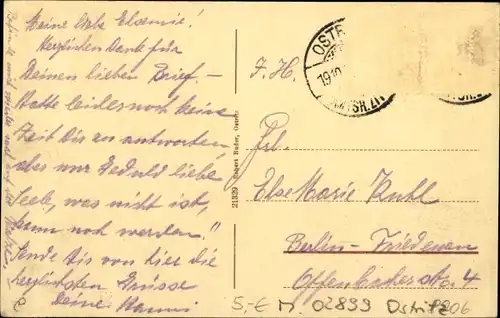 Meine liebe Elsemie!
Herzlichen Dank für
Deinen lieben Brief. –
Hatte leider noch keine
Zeit Dir zu antworten,
aber nur Geduld liebe
Seele, was nicht ist,
kann noch werden."
Sende Dir von hier die
herzlichsten Grüsse
Deine Hanni
21329
OSTR
19.10.
I. H.
Frl.
Else Marie Kuhl
Berlin-Friedenau
Offenbacherstr. 4
5,-€ M 02899 Ostritz 206